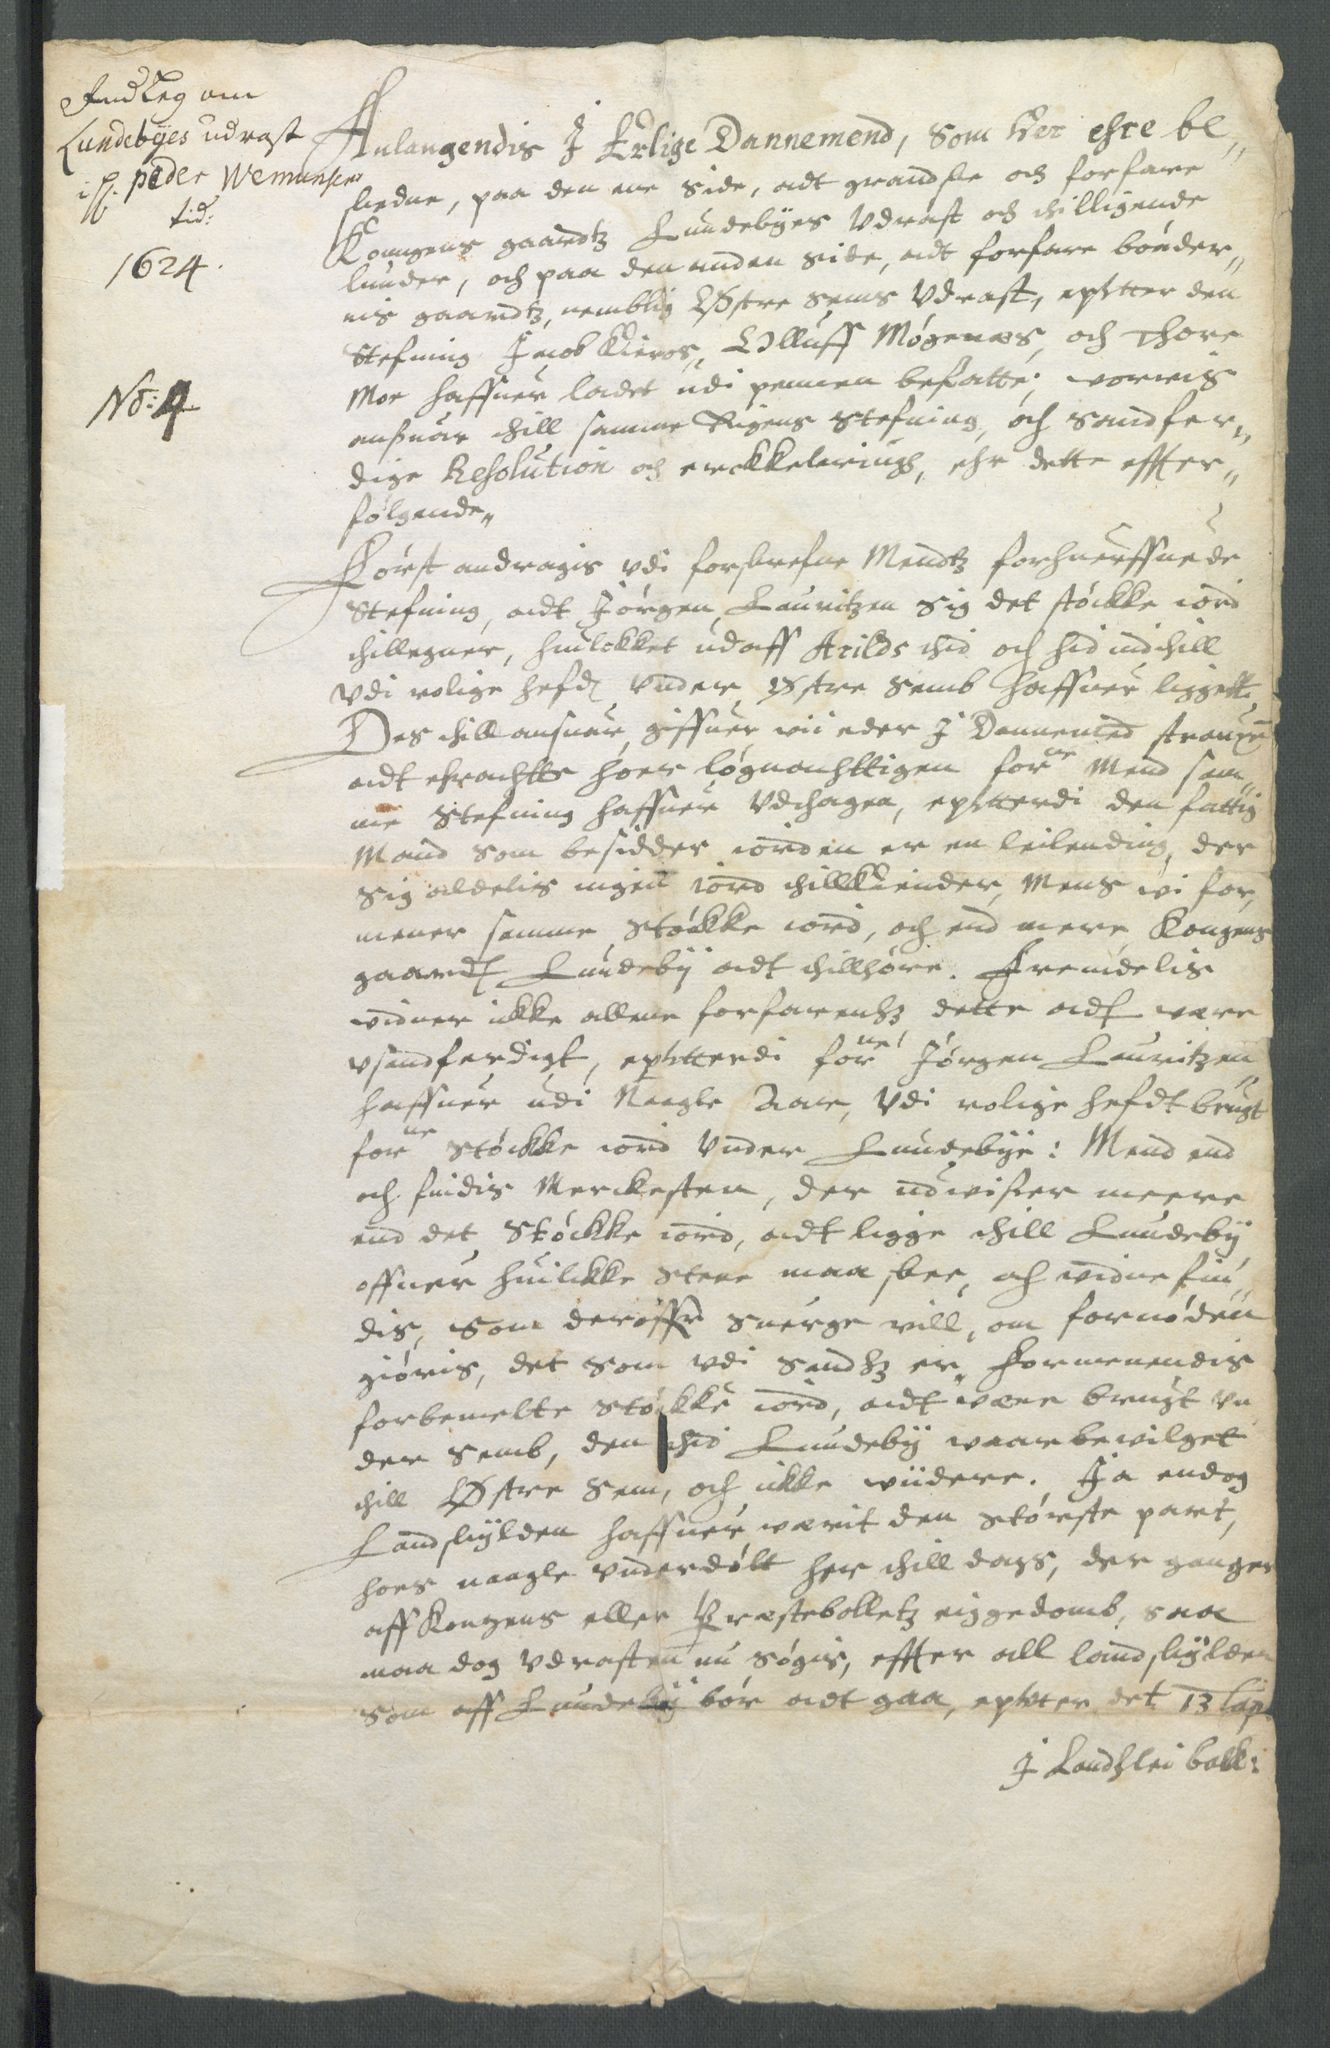 Indleg om
Lundebÿes udrast
i H. peder Wemunsens
tid:
1624.
No: 4
Anlangendis J Erlige Dannemend, Som her ehre be„
skedne, paa den ene side, adt grandske och forfare
Konngens gaardtz Lundebÿes Vdrast och thilligende
lunder, och paa den anden side, adt forfare bønder„
nis gaardtz, nemblig Østre Sems Vdrast, epther den
Stefning Jacob Kieros, Olluff Mögenes, och Thore
Moe haffuer ladet udi pennen befatte; vorris
ansuar thill samme Stefning, och sandfer„
dige Resolution och erckkeleringh, ehr dette effter„
følgende„
Først andragis vdi forskrefne Mendtz forhuerffuede
Stefning, adt Jörgen Lauritzen sig det støckke iord
thillegner, huilckket udaff Arilds thid och hid indthill
Vdi rolige hefd, vnder Østre Semb haffuer liggett.
Des thill ansuar, giffuer vii eder J Dannemend
adt løgnachttigen forne Mend sam„
me Stefning haffuer Vdthagen, eptterdi den fattig
Mand som besidder iorden er en leilending, der
sig aldelis ingen iord thillkiender, Mens vi for„
mener samme støckke iord, och end mere Kongens
gaard Lundebÿ adt thillhøre. Fremdelis
vidner ickke allene forfarenhz dette adt være
vsandferdigt, eptterdi forne Jörgen Lauritzen
haffuer udi Naagle Aar, Vdi rolige hefdt brugt
forne støckke iord Vnder Lundebÿe: Mend end
och findis Merckesten, der udviser meere
end det Støckke iord, adt ligge thill Lundebÿ
offuer huilckke stene maa skee, och vidne fin„
dis, som deröffr suerge vill, om fornöden
giöris, det som vdi sandhz er„ Formenendis
forbemelte støckke iord, adt være brugt vn
der Semb, den thid Lundebÿ vaar bewilget
thill Østre Sem, och ickke viidere. Ja endog
Landskÿlden haffuer værit den störste part,
hoes naagle vnderdølt her thill dags, der ganger
aff Kongens eller Præstebolletz eiggedomb, saa
maa dog Vdrasten nu søgis, effter all landskÿlden
som aff Lundebÿ bør adt gaa, epther det 13 Cap.
J Landzlei balk: